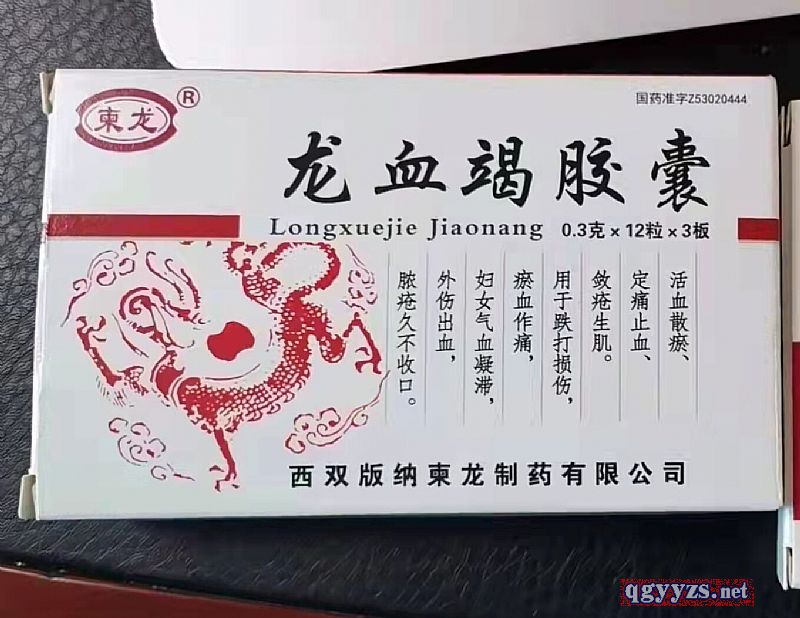 國药准字Z53020444
柬龙®
龙血竭胶囊
Longxuejie Jiaonang 0.3克×12粒×3板
活血散瘀、
定痛止血、
敛疮生肌。
用于跌打损伤,
瘀血作痛,
妇女气血凝滞,
外伤出血,
脓疮久不收口。
西双版纳柬龙制药有限公司
qgyyzs.net